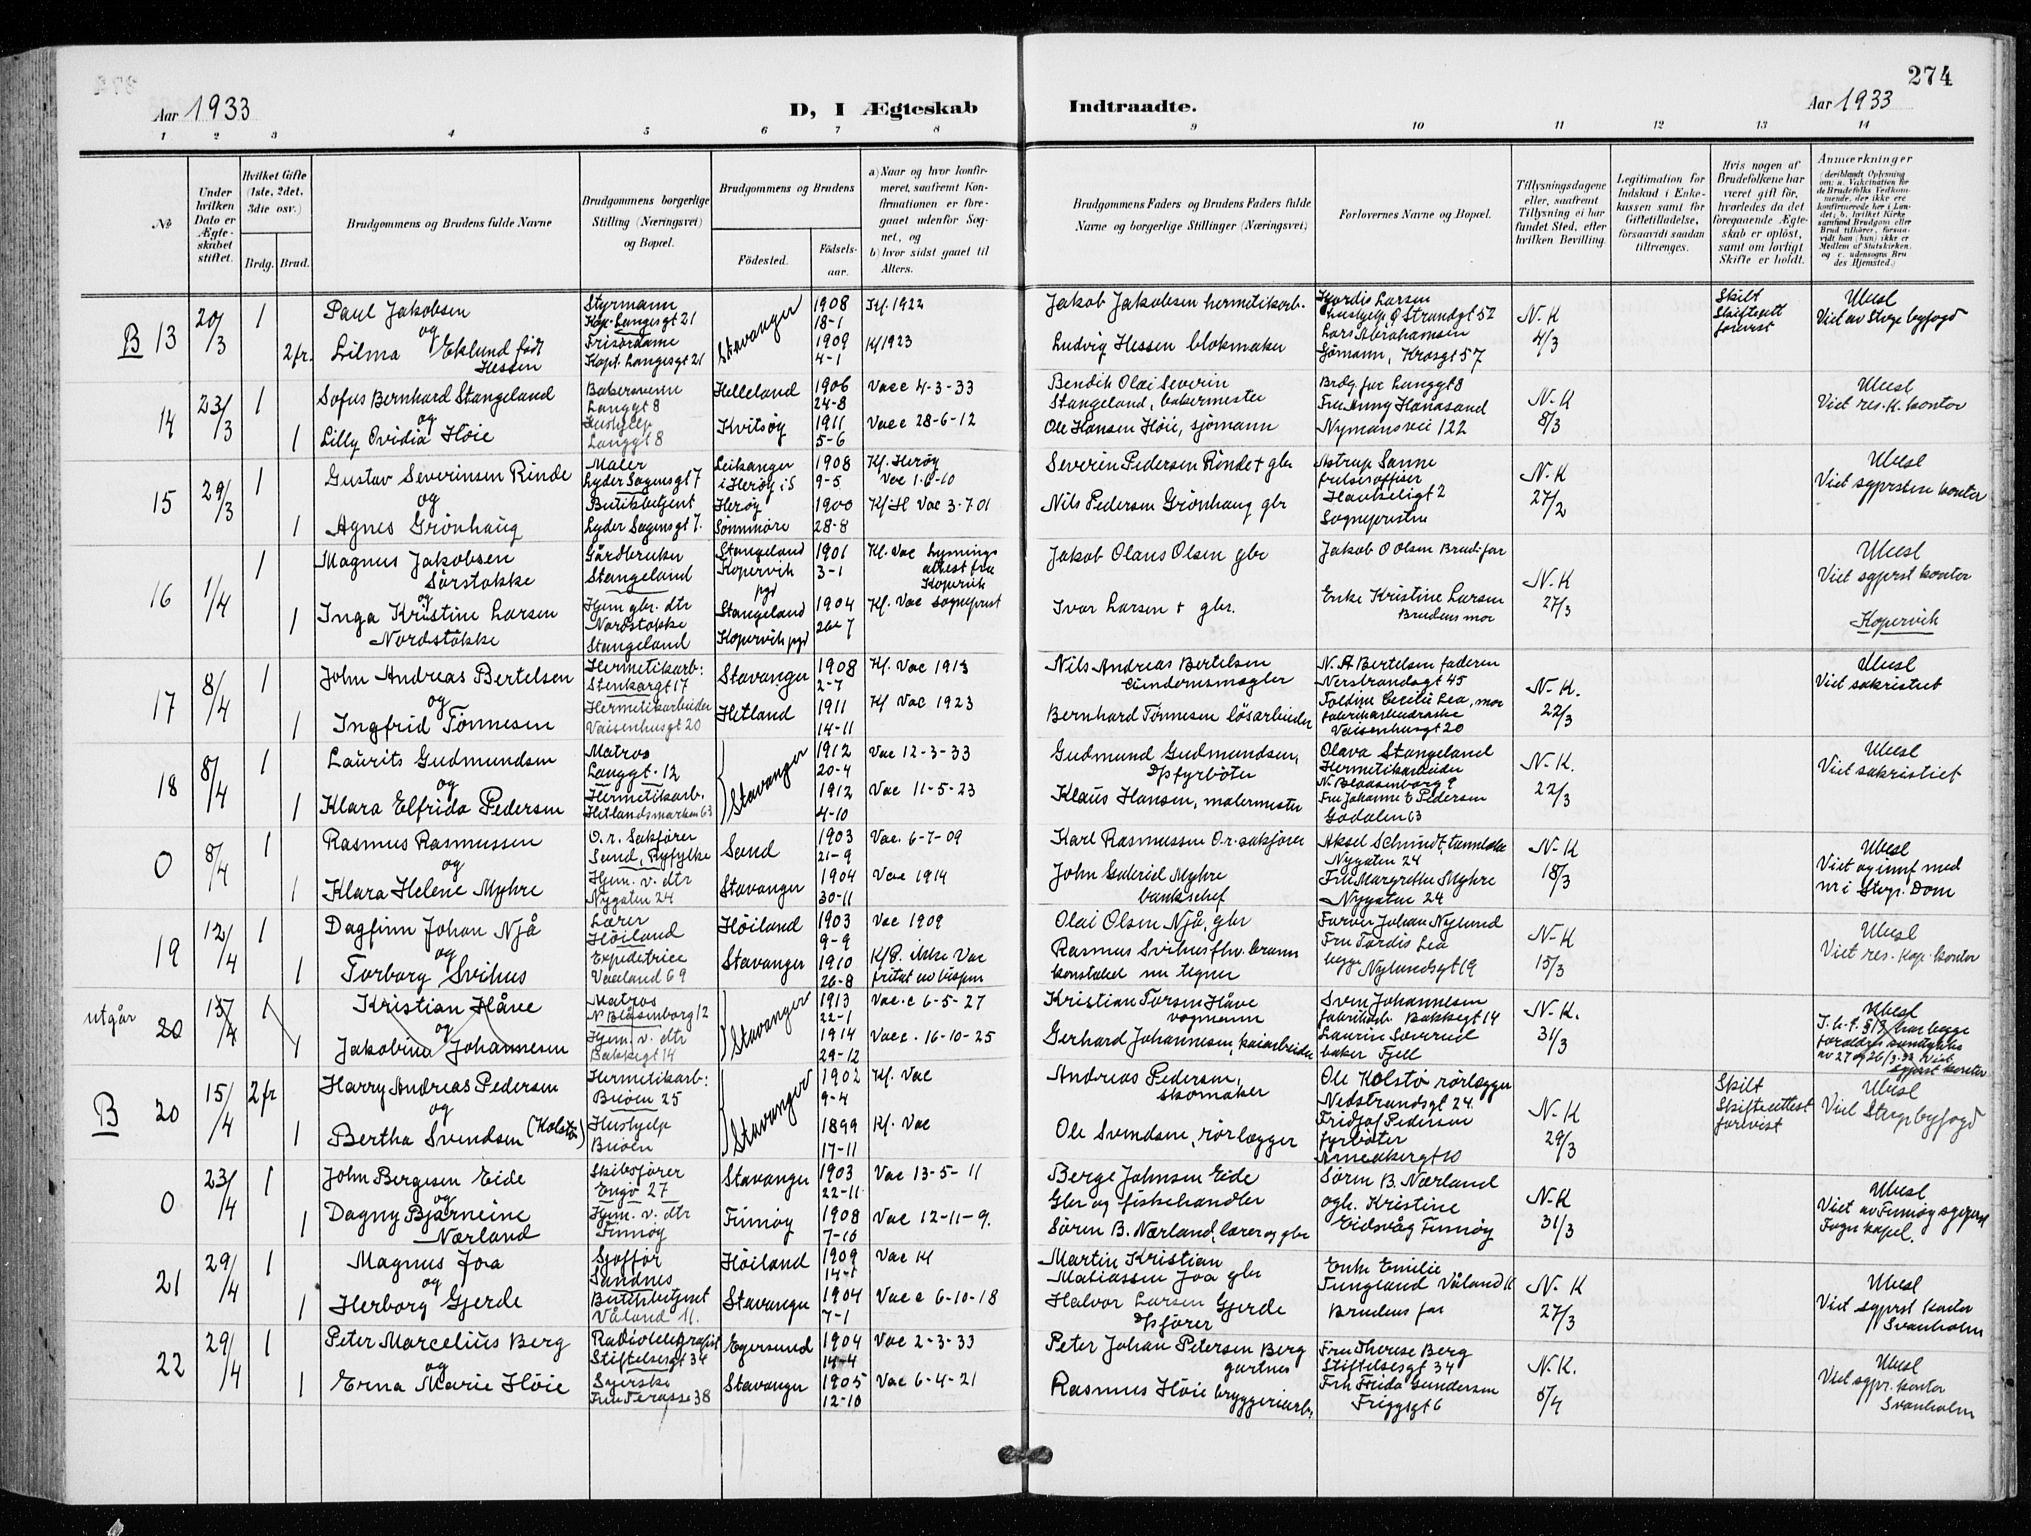 274
Aar 1933
D, I Ægteskab Indtraadte.
Aar 1933
1 2 3 4 5 6 7 8 9 10 11 12 13 14
№
Under hvilken Dato er Ægteskabet stiftet.
Hvilket Gifte (1ste, 2det, 3die osv.)
Brdg. Brud.
Brudgommens og Brudens fulde Navne
Brudgommens borgerlige Stilling (Næringsvei) og Bopæl.
Brudgommens og Brudens
Fødested.
Fødselsaar.
a) Naar og hvor konfirmeret, saafremt Konfirmationen er foregaaet udenfor Sognet, og
b) hvor sidst gaaet til Alters.
Brudgommens Faders og Brudens Faders fulde Navne og borgerlige Stillinger (Næringsvei)
Forlovernes Navne og Bopæl.
Tillysningsdagene eller, saafremt Tillysning ei har fundet Sted, efter hvilken Bevilling.
Legitimation for Indskud i Enkekassen samt for Giftetilladelse, forsaavidt saadan tiltrænges.
Hvis nogen af Brudefolkene har været gift før, hvorledes da det foregaaende Ægteskab er opløst, samt om lovligt Skifte er holdt.
Anmærkninger
(deriblandt Oplysning om: a. Vakcination for de Brudefolks Vedkommende, der ikke ere konfirmerede her i Landet; b. hvilket Kirkesamfund Brudgom eller Brud tilhører, forsaavidt han (hun) ikke er Medlem af Statskirken, og c. udensogns Brudes Hjemsted.)
B 13 20/3 1 Paul Jakobsen Styrmann Kap. Langesgt 21 Stavanger 1908 18-1 Kf. 1922 Jakob Jakobsen hermetikarb. Hjørdis Larsen hushjelp Ø Strandgt 52 N.K 4/3 Skilt Skifteatt forevist Ubesl Viet av Stvgr byfogd
og
2 fr. Lilma Eklund født Hessen Frisørdame Kapt. Langesgt 21 1909 4-1 Kf 1923 Ludvig Hessen blokmaker Lars Abrahamsen Sjømann, Krosgt 57
14 23/3 1 Sofus Bernhard Stangeland Bakersvenn Langgt 8 Helleland 1906 24-8 Vacc 4-3-33 Bendik Olai Severin Stangeland, bakermester Brdg. far Langgt 8 N.K 8/3 Ubesl Viet res. k. kontor
og
1 Lilly Ovidia Høie Hushjelp Langgt 8 Kvitsøy 1911 5-6 Vacc 28-6-12 Ole Hansen Høie, sjømann Fru Anny Hanasand Nymansvei 122
15 29/3 1 Gustav Severinsen Rinde Maler Lyder Sagensgt 7 Leikanger i Herøy i S 1908 9-5 Kf. Herøy Vac 1-6-10 Severin Pedersen Rinde + gbr Astrup Sanne frelsesoffiser Haukeligt 2 N.K 27/2 Ubesl Viet sgprsten kontor
og
1 Agnes Grønhaug Butikkbetjent Lyder Sagensgt 7. Herøy Sønnmøre 1900 28-8 Kf. H Vac 3-7-01 Nils Pedersen Grønhaug gbr Sogneprsten
16 1/4 1 Magnus Jakobsen Sørstokke Gårdbruker Stangeland Stangeland Kopervik pgd 1901 3-1 Kf. Vac Lysnings attest fra Kopervik Jakob Olaus Olsen gbr Jakob O Olsen Brud. far N.K 27/3 Ubesl Viet sgprst kontor
og
1 Inga Kristine Larsen Nordstokke Hjem gbr. dtr Nordstokke Stangeland Stangeland Kopervik pgd 1904 26-7 Kf. Vac sogneprst Ivar Larsen + gbr. Enke Kristine Larsen Brudens mor Kopervik
17 8/4 1 John Andreas Bertelsen Hermetikarb: Stenkargt 17 Stavanger 1908 2-7 Kf. Vac 1913 Nils Andreas Bertelsen N. A Bertelsen faderen Nerstrandsgt 45 N.K. 22/3 Ubesl Viet sakristiet
og
1 Ingfrid Tønnesen Hermetikarbeider Vaisenhusgt 20 Hetland 1911 14-11 Kf Vac 1923 Bernhard Tønnesen løsarbeider Toldine Cecilie Lea, mor Vaisenhusgt 20
18 8/4 1 Laurits Gudmundsen Matros Langgt. 12 Stavanger 1912 20-4 Vac 12-3-33 Gudmund Gudmundsen, Dpfyrbøter Olava Stangeland Hermetikarbeider N. Blaasenborg 9 N.K. 22/3 Ubesl Viet sakristiet
og
1 Klara Elfrida Pedersen Hermetikarb. Hetlandsmarken 63 1912 4-10 Vac 11-5-23 Klaus Hansen, malermester Fru Johanne E Pedersen Godalen 63
0 8/4 1 Rasmus Rasmussen O.r. Sakfører Sand, Ryfylke Sand 1903 21-9 Vac. 6-7-09 Karl Rasmussen O.r. sakfører Aksel Schmidt, tannlæge Nygaten 24 N.K 18/3 Ubesl Viet og innf med nr i Stvgr. Dom
og
1 Klara Helene Myhre Hjem. v. dtr Nygaten 24 Stavanger 1904 30-11 Vac 1914 John Gabriel Myhre banksjef Fru Margrethe Myhre Nygaten 24
19 12/4 1 Dagfinn Johan Njå Lærer Høiland Høiland 1903 9-9 Vac 1909 Olai Olsen Njå, gbr Farver Johan Nylund N.K 15/3 Ubesl Viet res. kap. kontor
og
1 Torborg Svihus Expeditrice Vaaland 69 Stavanger 1910 26-8 Kf P. ikke Vac fritat av bispen Rasmus Svihus fhv. brannkonstabel nu tegner Fru Tordis Lea begge Nylundsgt 19
utgår 20 15/4 1 Kristian Håve Matros N Blåsenborg 12 Stavanger 1913 22-1 Vac. c 6-5-27 Kristian Torsen Håve vognmann Sven Johannesen fabrikarb. Bakkegt 14 N.K. 31/3 Ubesl
og
1 Jakobina Johannesen Hjem. v. dtr Bakkegt 14 1914 29-12 Vacc. 16-10-25 Gerhard Johannesen, kaiarbeider Laurin Soverud baker Fjell
B 20 15/4 2 fr Harry Andreas Pedersen Hermetikarb: Buøen 25 Stavanger 1902 9-4 Kf. Vac Andreas Pedersen, skomaker Ole Kolstø rørlegger Nedstrandsgt 24. N.K 29/3 Skilt Skifteattest forvist Ubesl Viet Stvgr byfogd
og
1 Bertha Svendsen (Kolstø) Hushjelp Buøen 1899 17-11 Kf. Vac Ole Svendsen, rørlegger Fridjof Pedersen fyrbøter
0 23/4 1 John Bergesen Eide Skibsfører Engø 27 Stavanger 1903 22-11 Vac 13-5-11 Berge Johnsen Eide Gbr og fiskehandler Søren B. Nærland N.K 31/3 Ubesl Viet av Finnøy sgprst Fogn kapel.
og
1 Dagny Bjarneine Nærland Hjem. v. dtr Finnøy Finnøy 1908 7-10 Vac 12-11-9. Søren B. Nærland, lærer og gbr ogh. Kristine Eidsvåg Finnøy
21 29/4 1 Magnus Joa Sjåffør Sandnes Høiland 1909 14-1 Vac Kf Martin Kristian Matiassen Joa gbr Enke Emilie Tungland Våland 11 N.K 27/3 Ubesl Viet sgprst kontor Svanholm
og
1 Herborg Gjerde Butikkbetjent Våland 11. Stavanger 1904 7-1 Vac c 6-10-18 Halvor Larsen Gjerde Dpfører Brudens far
22 29/4 1 Peter Marcelius Berg Radiotelegrafist Stiftelsesgt 34 Egersund 1904 14-4 Vac 2-3-33 Peter Johan Petersen Berg gartner Fru Therese Berg Stiftelsesgt 34 N.K. 5/4 Ubesl Viet sgpr. kontor Svanholm
og
1 Erna Marie Høie Syerske Stavanger 1905 12-10 Vac 6-4-21 Rasmus Høie bryggeriarb. Frk Frida Gundersen Friggsgt 6